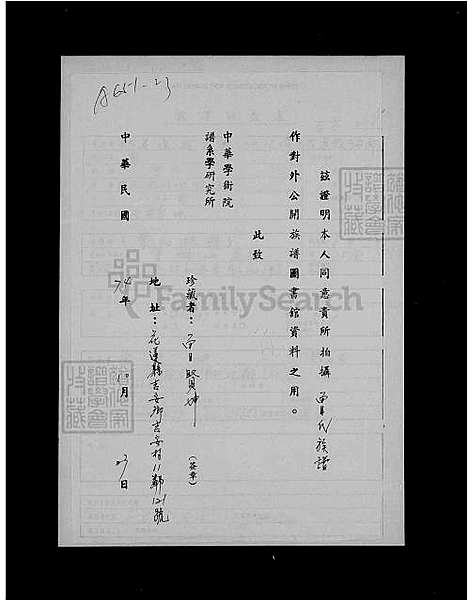 A651-23
茲證明本人同意貴所拍攝 氏族譜
作對外公開族譜圖書館資料之用。
此致
中華學術院
譜系學研究所
珍藏者： 賢坤 (簽章)
地址：花蓮縣吉安鄉吉安村11鄰121號
中華民國 74年 10月 27日
FamilySearch